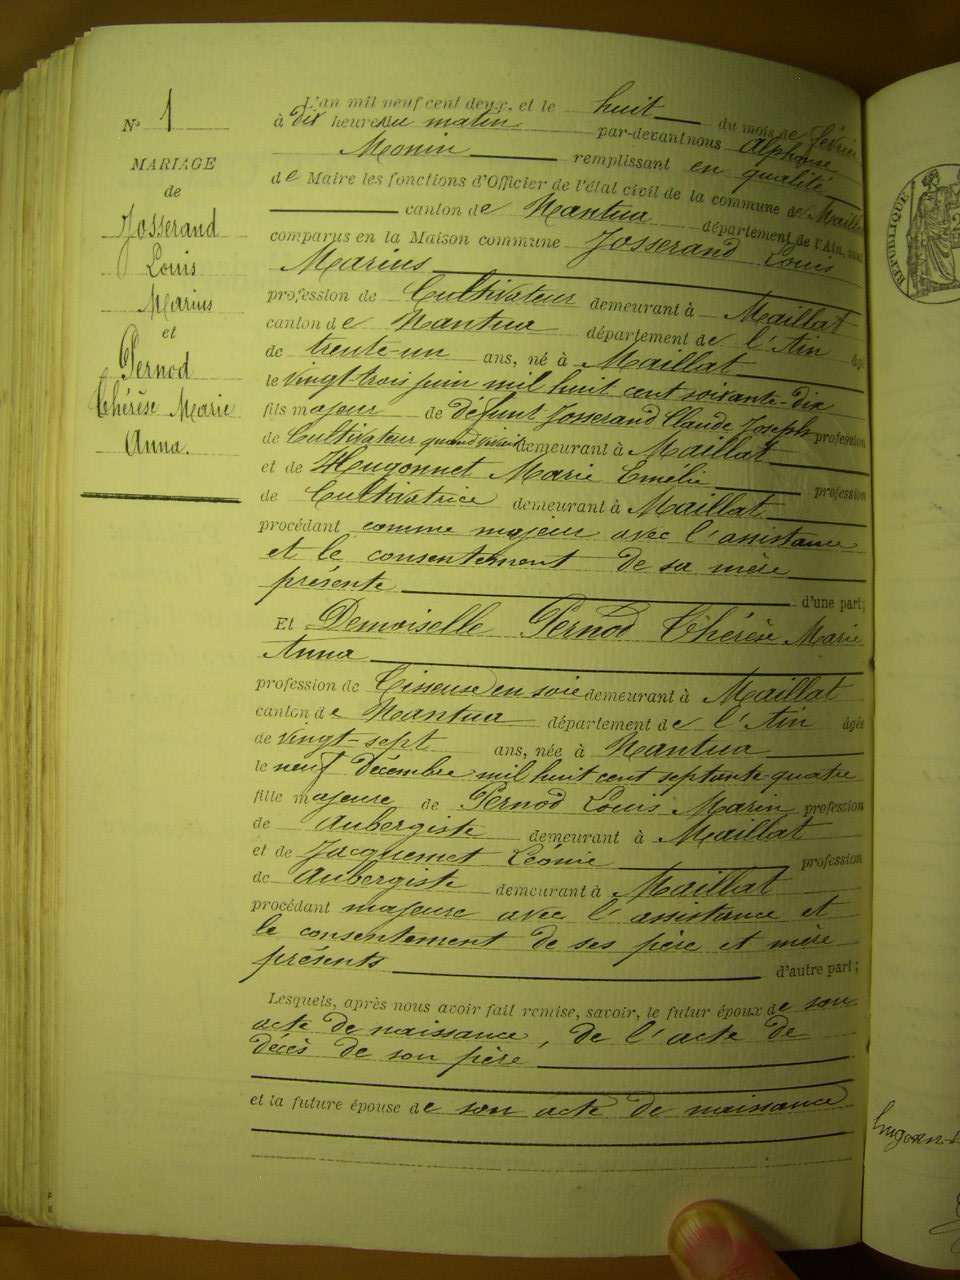 N° 1
MARIAGE
de
Josserand
Louis
Marius
et
Pernod
Thérèse Marie
Anna.
L'an mil neuf cent deux, et le huit du mois de février
à dix heures du matin par-devant nous Alphonse
Monin remplissant en qualité
de Maire les fonctions d'Officier de l'état civil de la commune de Maillat
canton de Nantua département de l'Ain, sont
comparus en la Maison commune Josserand Louis
Marius
profession de Cultivateur demeurant à Maillat
canton de Nantua département de l'Ain âgé
de trente-un ans, né à Maillat
le vingt-trois juin mil huit cent soixante-dix
fils majeur de défunt Josserand Claude Joseph profession
de Cultivateur quand vivait demeurant à Maillat
et de Hugonnet Marie Emélie profession
de Cultivatrice demeurant à Maillat
procédant comme majeur avec l'assistance
et le consentement de sa mère
présente d'une part;
Et Demoiselle Pernod Thérèse Marie
Anna
profession de Tisseuse en soie demeurant à Maillat
canton de Nantua département de l'Ain âgée
de vingt-sept ans, née à Nantua
le neuf décembre mil huit cent septante-quatre
fille majeure de Pernod Louis Marin profession
de Aubergiste demeurant à Maillat
et de Jacquemet Léonie profession
de Aubergiste demeurant à Maillat
procédant majeure avec l'assistance et
le consentement de ses père et mère
présents d'autre part;
Lesquels, après nous avoir fait remise, savoir, le futur époux de son
acte de naissance, de l'acte de
décès de son père
et la future épouse de son acte de naissance
RÉPUBLIQUE